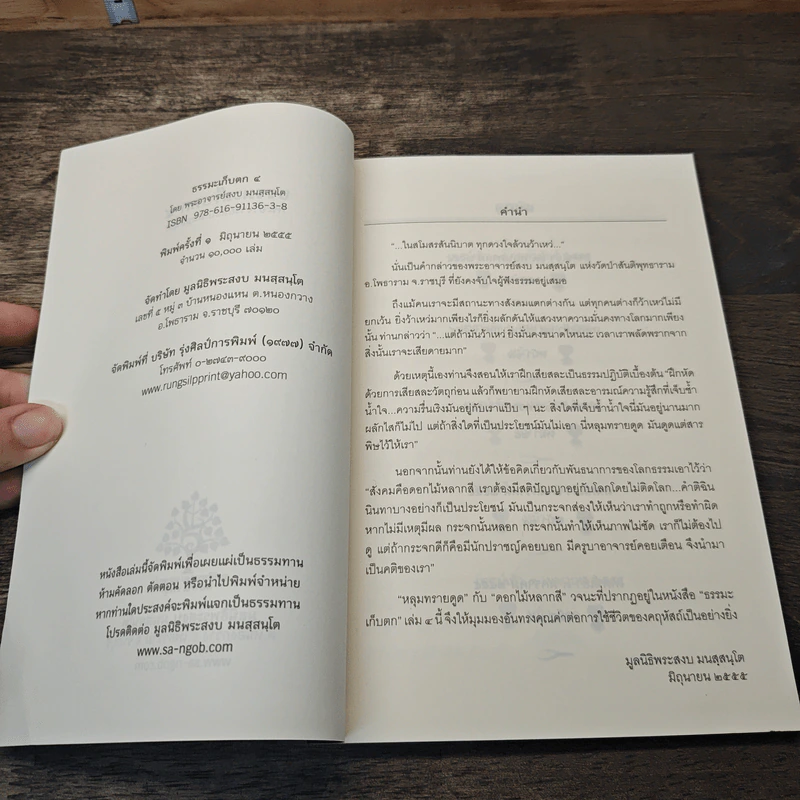 ธรรมะเก็บตก ๔
โดย พระอาจารย์สงบ มนสฺสนฺโต
ISBN 978-616-91136-3-8
พิมพ์ครั้งที่ ๑ มิถุนายน ๒๕๕๕
จำนวน ๑๐,๐๐๐ เล่ม
จัดทำโดย มูลนิธิพระสงบ มนสฺสนฺโต
เลขที่ ๕ หมู่ ๓ บ้านหนองแหน ต.หนองกวาง
อ.โพธาราม จ.ราชบุรี ๗๐๑๒๐
จัดพิมพ์ที่ บริษัท รุ่งศิลป์การพิมพ์ (๑๙๗๗) จำกัด
โทรศัพท์ ๐-๒๗๔๓-๙๐๐๐
www.rungsilpprint@yahoo.com
หนังสือเล่มนี้จัดพิมพ์เพื่อเผยแผ่เป็นธรรมทาน
ห้ามคัดลอก ตัดตอน หรือนำไปพิมพ์จำหน่าย
หากท่านใดประสงค์จะพิมพ์แจกเป็นธรรมทาน
โปรดติดต่อ มูลนิธิพระสงบ มนสฺสนฺโต
www.sa-ngob.com
คำนำ
"...ในสโมสรสันนิบาต ทุกดวงใจล้วนว้าเหว่..."
นั่นเป็นคำกล่าวของพระอาจารย์สงบ มนสฺสนฺโต แห่งวัดป่าสันติพุทธาราม
อ.โพธาราม จ.ราชบุรี ที่ยังคงจับใจผู้ฟังธรรมอยู่เสมอ
ถึงแม้คนเราจะมีสถานะทางสังคมแตกต่างกัน แต่ทุกคนต่างก็ว้าเหว่ไม่มี
ยกเว้น ยิ่งว้าเหว่มากเพียงไรก็ยิ่งผลักดันให้แสวงหาความมั่นคงทางโลกมากเพียง
นั้น ท่านกล่าวว่า "...แต่ถ้ามันว้าเหว่ ยิ่งมั่นคงขนาดไหนนะ เวลาเราพลัดพรากจาก
สิ่งนั้นเราจะเสียดายมาก"
ด้วยเหตุนี้เองท่านจึงสอนให้เราฝึกเสียสละเป็นธรรมปฏิบัติเบื้องต้น "ฝึกหัด
ด้วยการเสียสละวัตถุก่อน แล้วก็พยายามฝึกหัดเสียสละอารมณ์ความรู้สึกที่เจ็บช้ำ
น้ำใจ...ความรื่นเริงมันอยู่กับเราแป๊บ ๆ นะ สิ่งใดที่เจ็บช้ำน้ำใจนี่มันอยู่นานมาก
ผลักไสก็ไม่ไป แต่ถ้าสิ่งใดที่เป็นประโยชน์มันไม่เอา นี่หลุมทรายดูด มันดูดแต่สาร
พิษไว้ให้เรา"
นอกจากนั้นท่านยังได้ให้ข้อคิดเกี่ยวกับพันธนาการของโลกธรรมเอาไว้ว่า
"สังคมคือดอกไม้หลากสี เราต้องมีสติปัญญาอยู่กับโลกโดยไม่ติดโลก...คำติฉิน
นินทาบางอย่างก็เป็นประโยชน์ มันเป็นกระจกส่องให้เห็นว่าเราทำถูกหรือทำผิด
หากไม่มีเหตุมีผล กระจกนั้นหลอก กระจกนั้นทำให้เห็นภาพไม่ชัด เราก็ไม่ต้องไป
ดู แต่ถ้ากระจกดีก็คือมีนักปราชญ์คอยบอก มีครูบาอาจารย์คอยเตือน จึงนำมา
เป็นคติของเรา"
"หลุมทรายดูด" กับ "ดอกไม้หลากสี" วจนะที่ปรากฏอยู่ในหนังสือ "ธรรมะ
เก็บตก" เล่ม ๔ นี้ จึงให้มุมมองอันทรงคุณค่าต่อการใช้ชีวิตของคฤหัสถ์เป็นอย่างยิ่ง
มูลนิธิพระสงบ มนสฺสนฺโต
มิถุนายน ๒๕๕๕